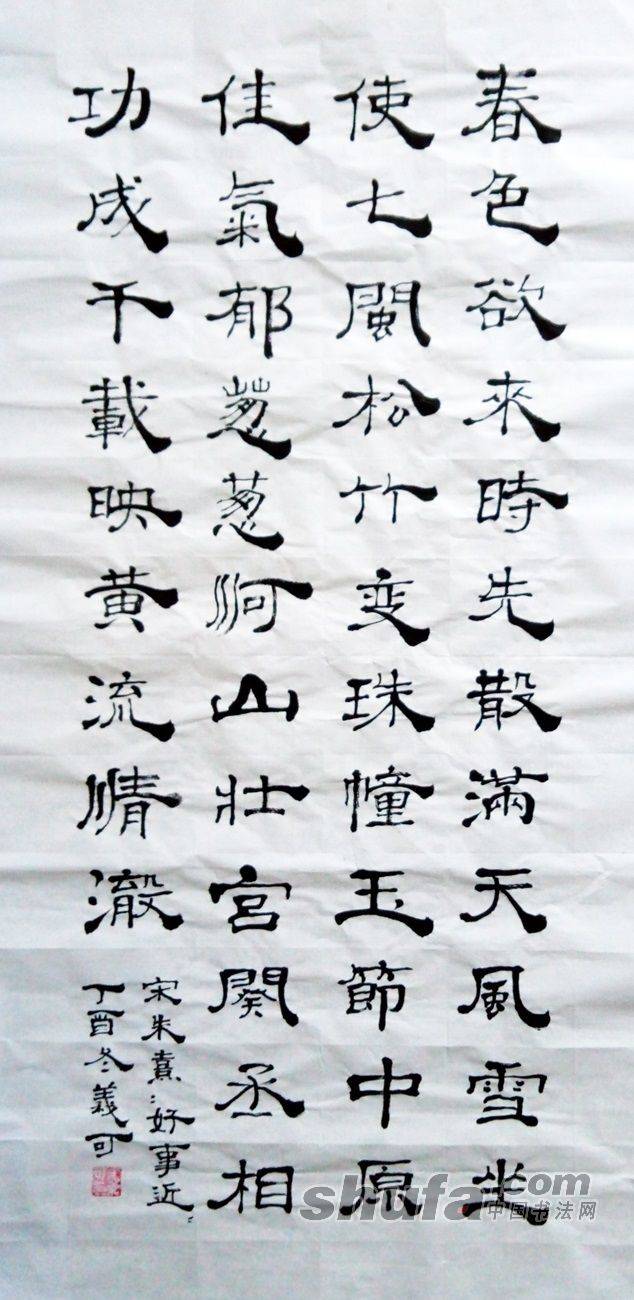 春色欲來時先散滿天風雪坐
使七閩松竹变珠幢玉節中原
佳氣郁葱葱河山壯宮闕丞相
功成千載映黄流清澈
宋朱熹：好事近：
丁酉冬義可
shufa.com
中国书法网